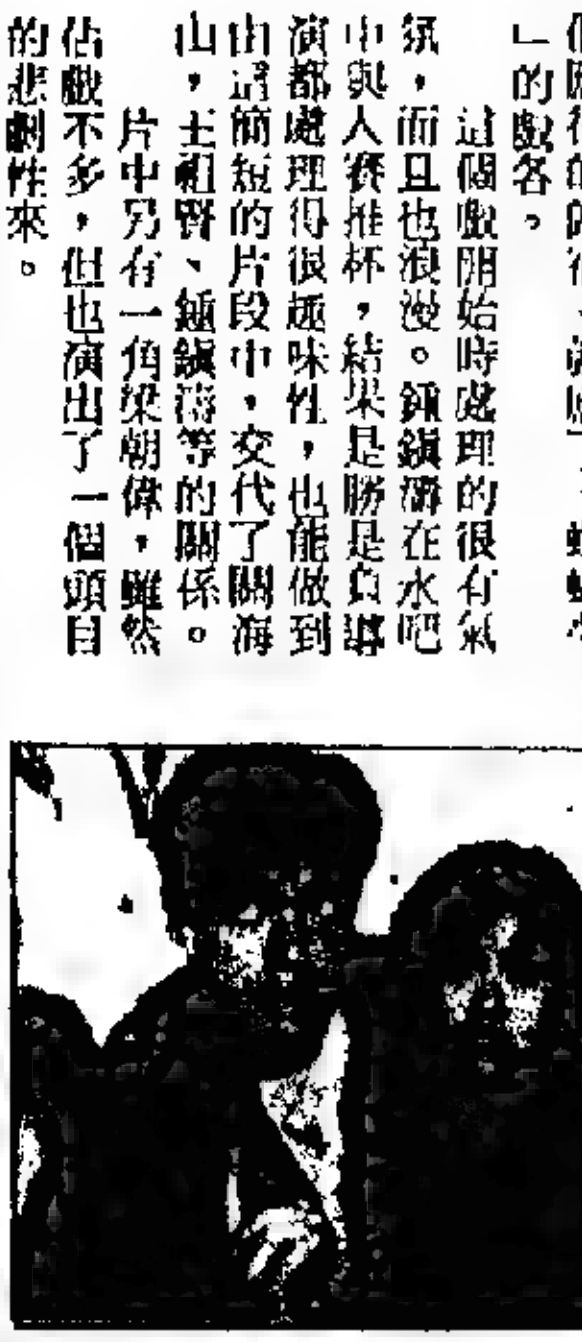 」的戲各。
這個戲開始時處理的很有氣
氛，而且也浪漫。鍾鎮濤在水吧
中與人賽推杯，結果是勝是負導
演都處理得很趣味性，也能做到
由這簡短的片段中，交代了關海
山，王祖賢、鍾鎮濤等的關係。
片中另有一角梁朝偉，雖然
佔戲不多，但也演出了一個頭目
的悲劇性來。